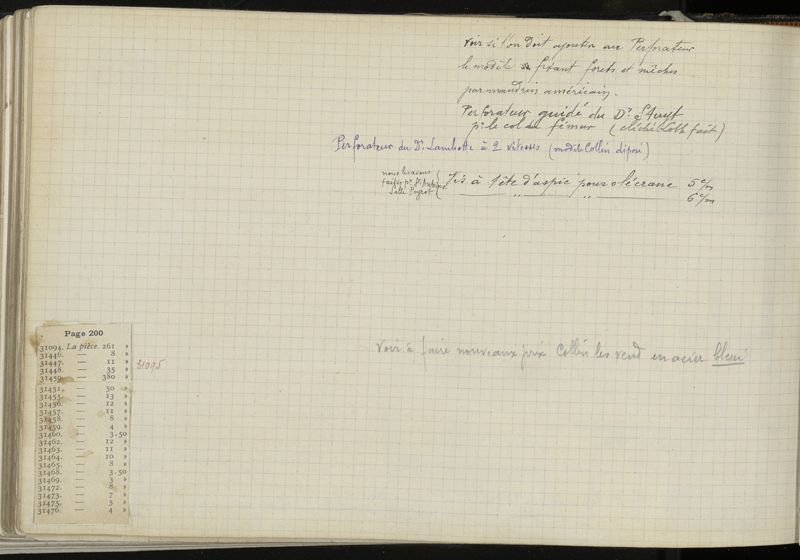 Voir si l'on doit ajouter au Perforateur
le modèle fixant forets et mèches
par mandrin américain.
Perforateur guidé du Dr.
pr. le col du fémur (cliché fait)
Perforateur du Dr. Lambotte à 2 vitesses (modèle Collin déposé)
nous les avons
faites pr. St Antoine
Salle Peyrot
Vis à tête d'aspic pour olécrane 5 c/m
" " 6 c/m
Page 200
31094. La pièce. 261 »
31446. — 8 »
31447. — 11 »
31448. — 35 »
31459. — 380 »
31095
31451. — 50 »
31455. — 13 »
31456. — 12 »
31457. — 11 »
31458. — 8 »
31459. — 4 »
31460. — 3.50
31462. — 12 »
31463. — 11 »
31464. — 10 »
31465. — 8 »
31468. — 3.50
31469. — 3 »
31472. — 8 »
31473. — 7 »
31475. — 5 »
31476. — 4 »
Voir à faire nouveaux prix Collin les vend en acier bleui